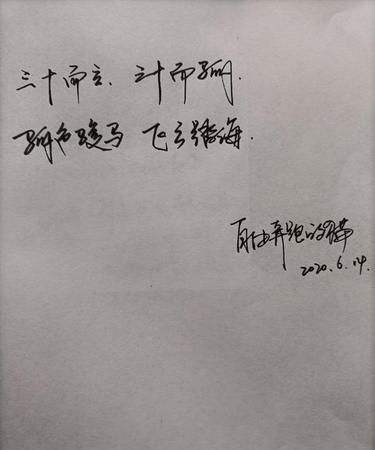 三十而立、三十而骊.
骊 骏马 飞云 海.
自由奔跑的
2020.6.14.